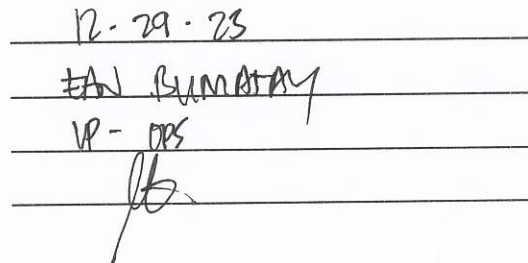 12-29-23
EAN BUMATAY
VP - OPS